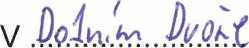 V Dolním Dvoře